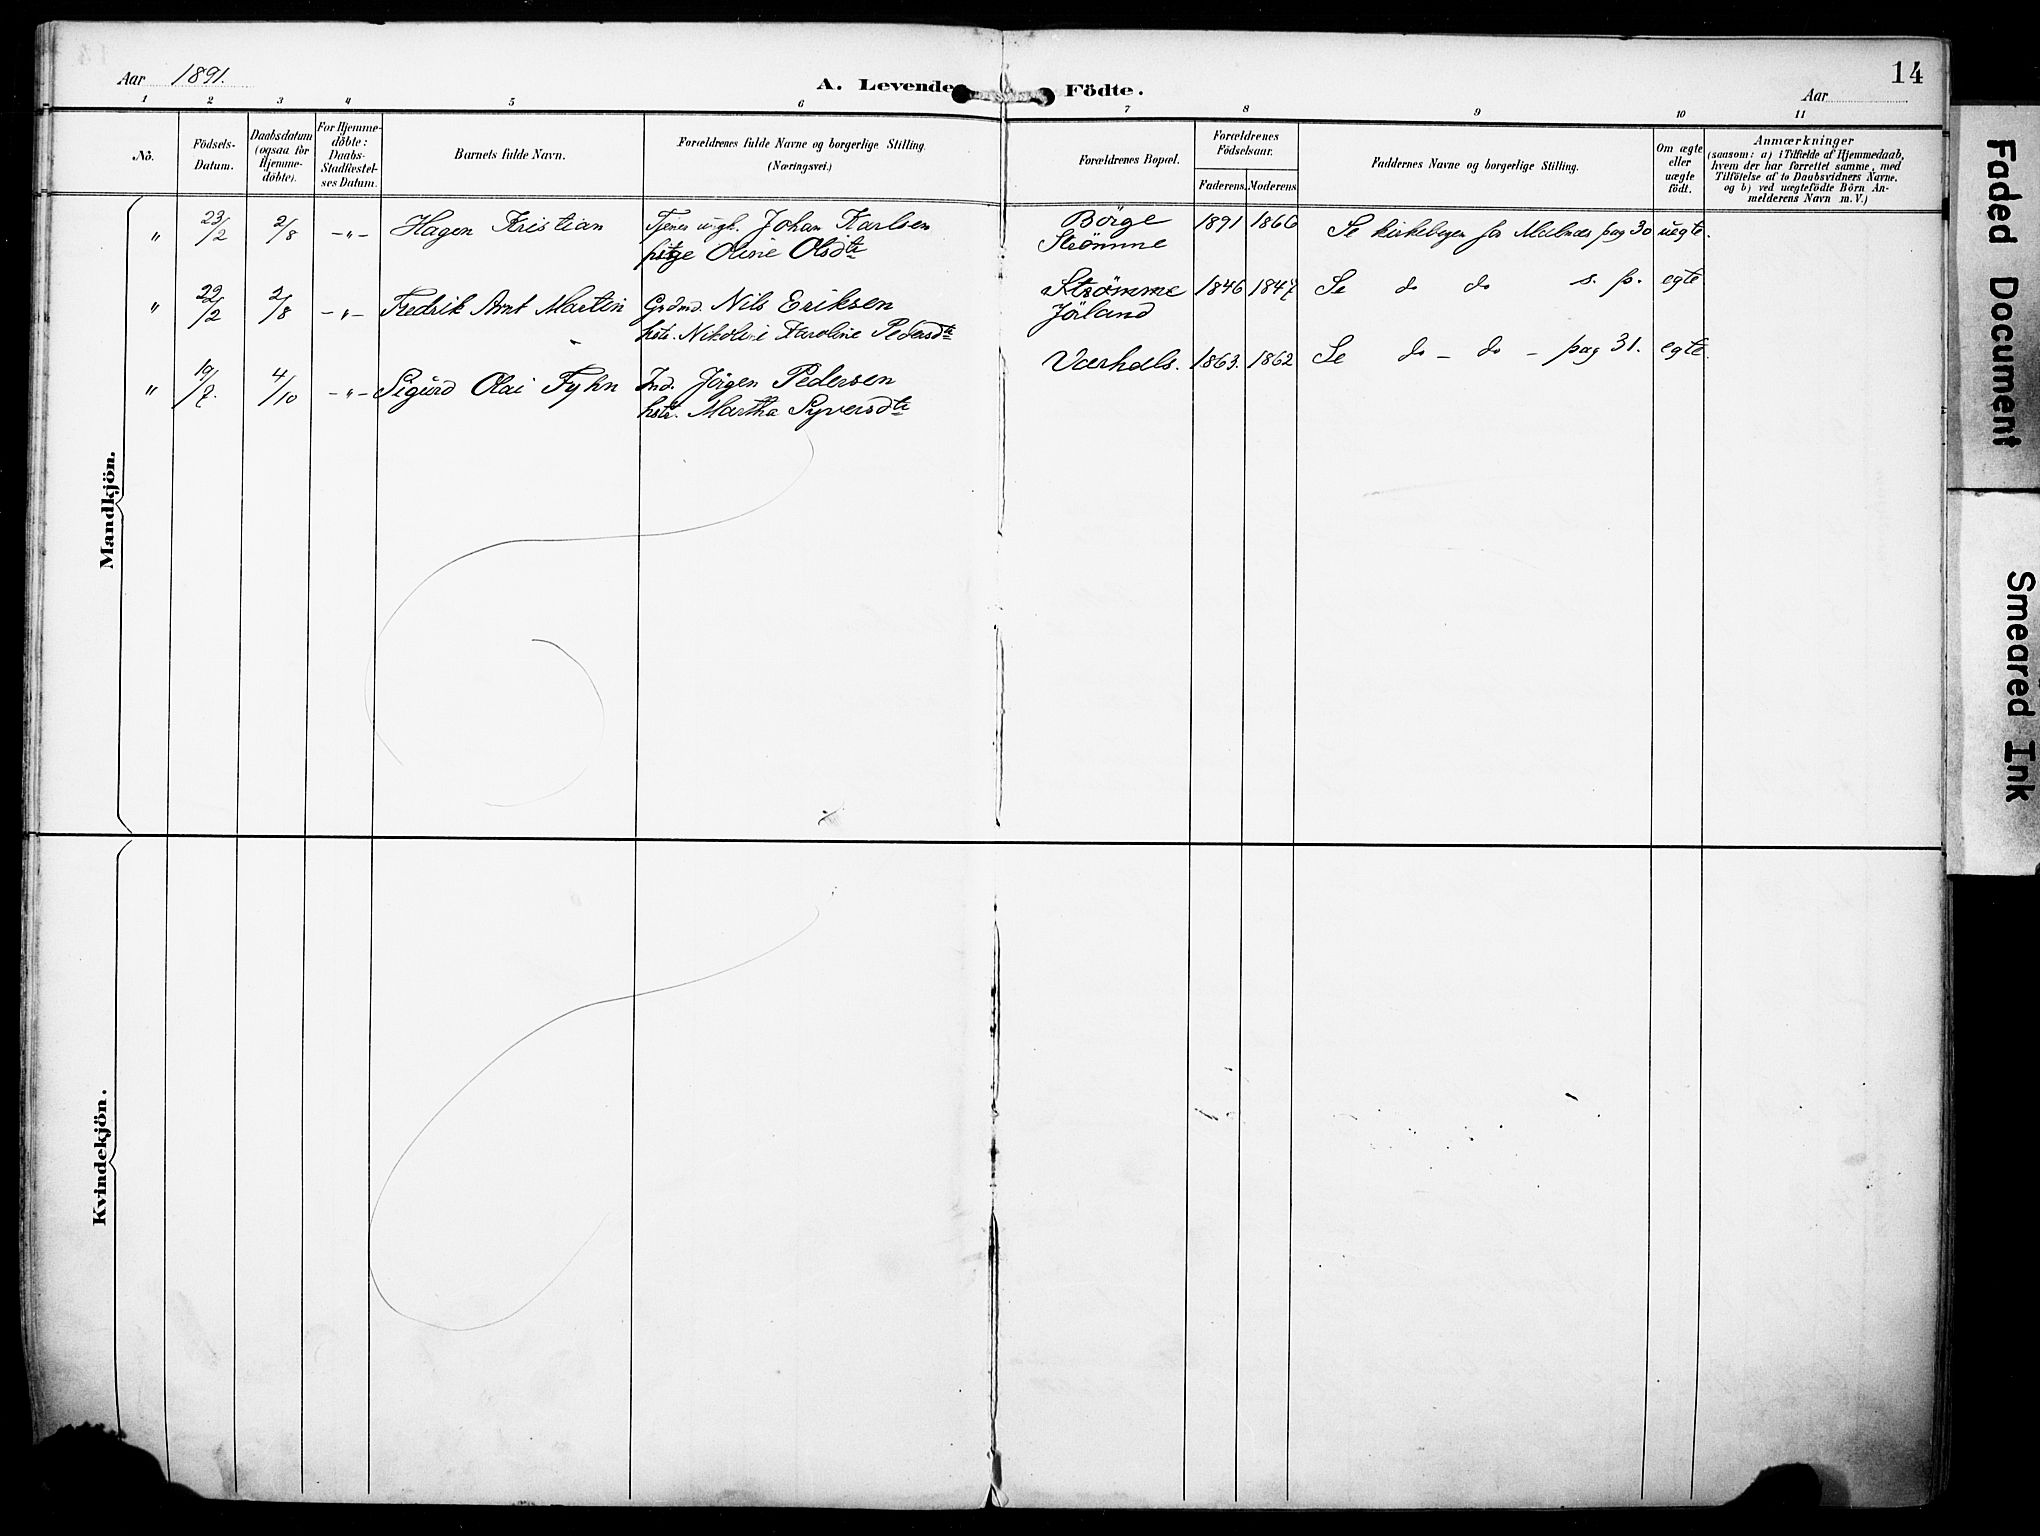 14
Aar 1891.
A. Levende Födte.
Aar
1 2 3 4 5 6 7 8 9 10 11
No.
Födsels-
Datum.
Daabsdatum
(ogsaa for
Hjemme-
döbte).
For Hjemme-
döbte:
Daabs-
Stadfæstel-
ses Datum.
Barnets fulde Navn.
Forældrenes fulde Navne og borgerlige Stilling.
(Næringsvei.)
Forældrenes Bopæl.
Forældrenes
Födselsaar.
Faderens. Moderens.
Faddernes Navne og borgerlige Stilling.
Om ægte
eller
uægte
födt.
Anmærkninger
(saasom: a) i Tilfælde af Hjemmedaab,
hvem der har forrettet samme, med
Tilföielse af to Daabsvidners Navne.
og b) ved uægtefödte Börn An-
melderens Navn m. V.)
Mandkjön.
" 23/2 2/8 -"- Hagen Kristian Tjener ungk. Johan Karlsen Börge 1891 1866 Se kirkebogen for Malnæs pag 30 uegte.
pige Oline Olsdtr Strömme
" 22/2 2/8 -"- Fredrik Arnt Martin Grdmd. Nils Eriksen Strömme 1846 1847 Se do do s. p. egte
hstr. Nikoline Karoline Pedersdtr Jörland
" 19/7. 4/10 -"- Sigurd Olai Fyhn Ind. Jörgen Pedersen Værhals. 1863. 1862 Se do - do - pag 31. egte.
hstr. Martha Syversdtr
Kvindekjön.
Faded Document
Smeared Ink